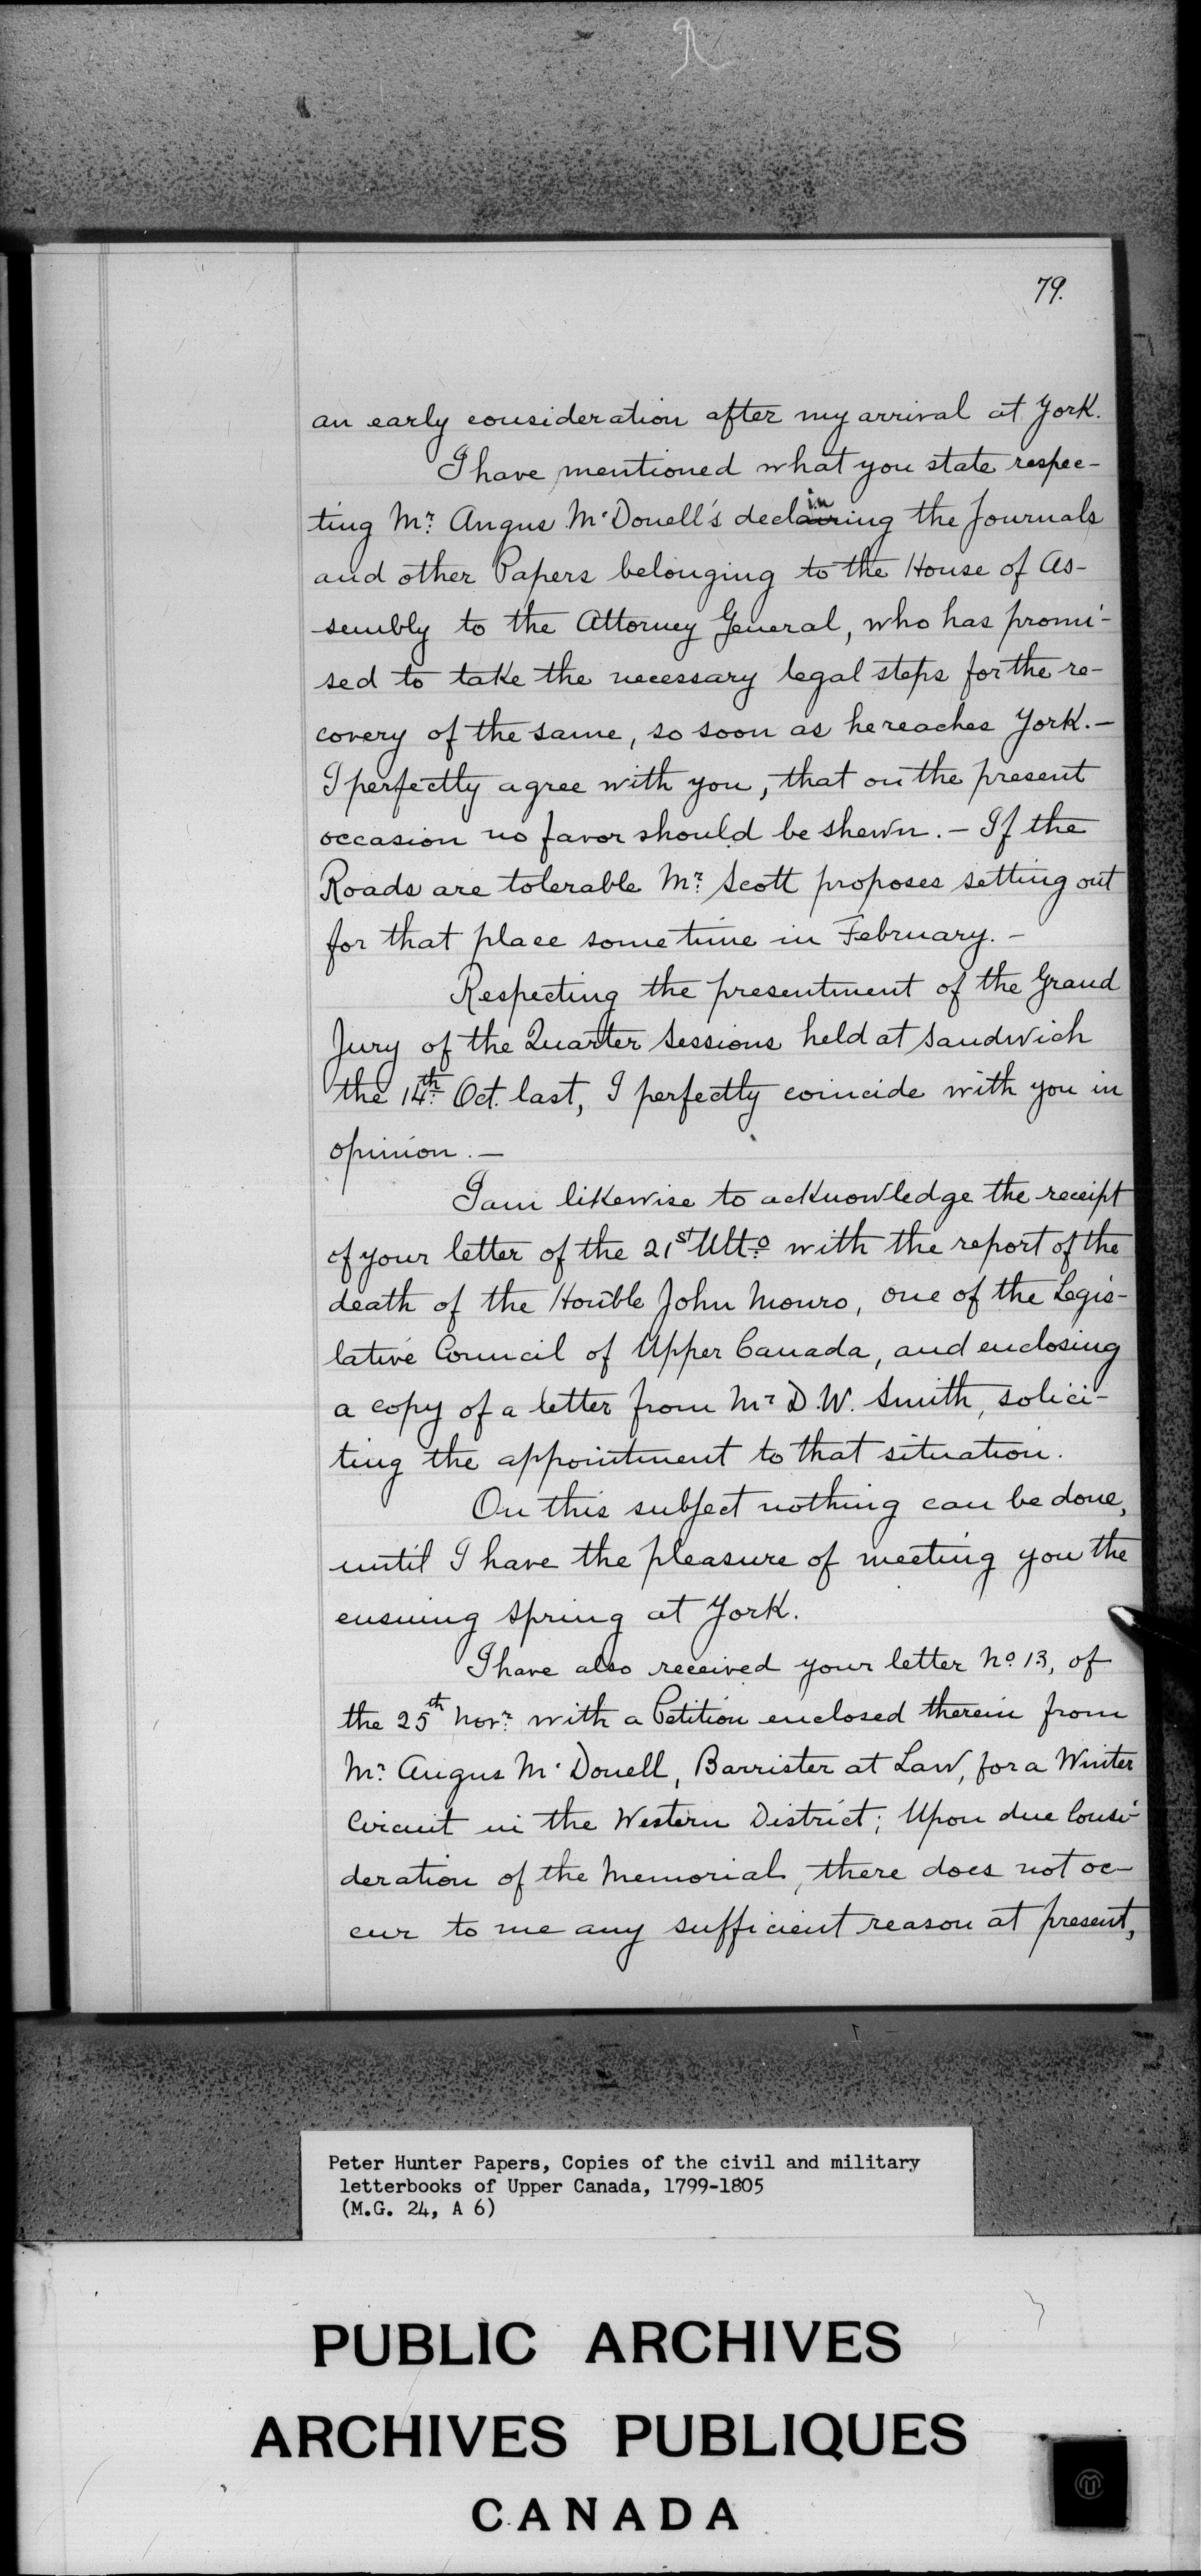 79.
an early consideration after my arrival at York.
I have mentioned what you state respec-
ting Mr. Angus McDonell's declining the Journals
and other Papers belonging to the House of As-
sembly to the Attorney General, who has promi-
sed to take the necessary legal steps for the re-
covery of the same, so soon as he reaches York.—
I perfectly agree with you, that on the present
occasion no favor should be shewn.— If the
Roads are tolerable Mr. Scott proposes setting out
for that place some time in February.—
Respecting the presentment of the Grand
Jury of the Quarter Sessions held at Sandwich
the 14th. Oct. last, I perfectly coincide with you in
opinion.—
I am likewise to acknowledge the receipt
of your letter of the 21st Ulto. with the report of the
death of the Honble John Monro, one of the Legis-
lative Council of Upper Canada, and enclosing
a copy of a letter from Mr D.W. Smith, solici-
ting the appointment to that situation.
On this subject nothing can be done,
until I have the pleasure of meeting you the
ensuing Spring at York.
I have also received your letter No. 13, of
the 25th Novr. with a Petition enclosed therein from
Mr. Angus McDonell, Barrister at Law, for a Winter
Circuit in the Western District; Upon due Consi-
deration of the Memorial, there does not oc-
cur to me any sufficient reason at present,
Peter Hunter Papers, Copies of the civil and military
letterbooks of Upper Canada, 1799-1805
(M.G. 24, A 6)
PUBLIC ARCHIVES
ARCHIVES PUBLIQUES
CANADA